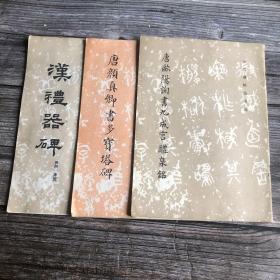 漢禮器碑
唐顏真卿書多寶塔碑
唐歐陽詢書九成宮醴泉銘